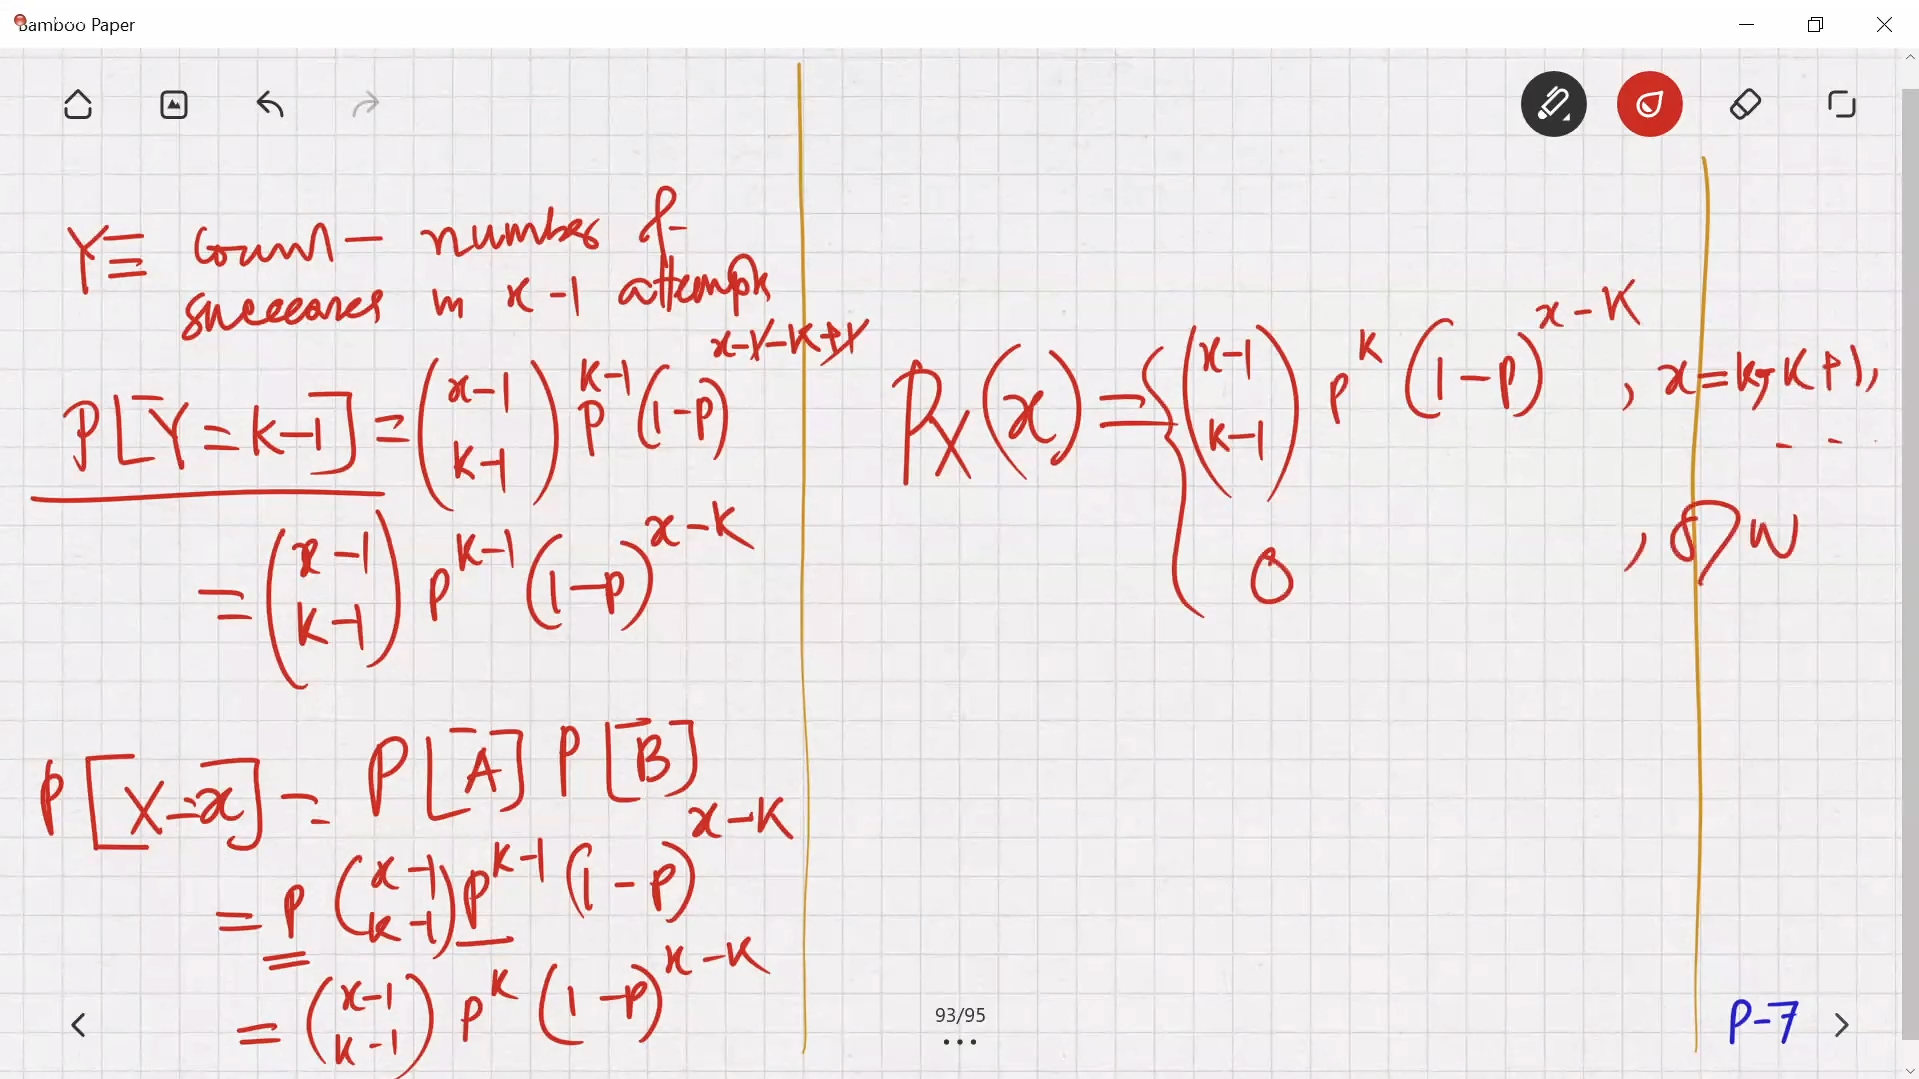 Bamboo Paper
Y ≡ Count - number of
successes in x-1 attempts
P[Y = k-1] = (x-1 k-1) p^{k-1} (1-p)^{x-1-k+1}
= (x-1 k-1) p^{k-1} (1-p)^{x-k}
P[X=x] = P[A] P[B]
= p (x-1 k-1) p^{k-1} (1-p)^{x-k}
= (x-1 k-1) p^k (1-p)^{x-k}
P_X(x) = { (x-1 k-1) p^k (1-p)^{x-k} , x = k, k+1, ...
0 , OW
93/95
P-7